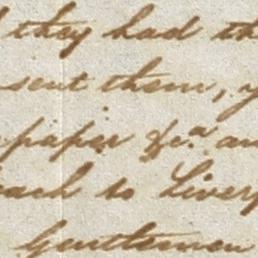 they had th
sent them, y
paper &c.a an
each to Liverp
Gentlemen